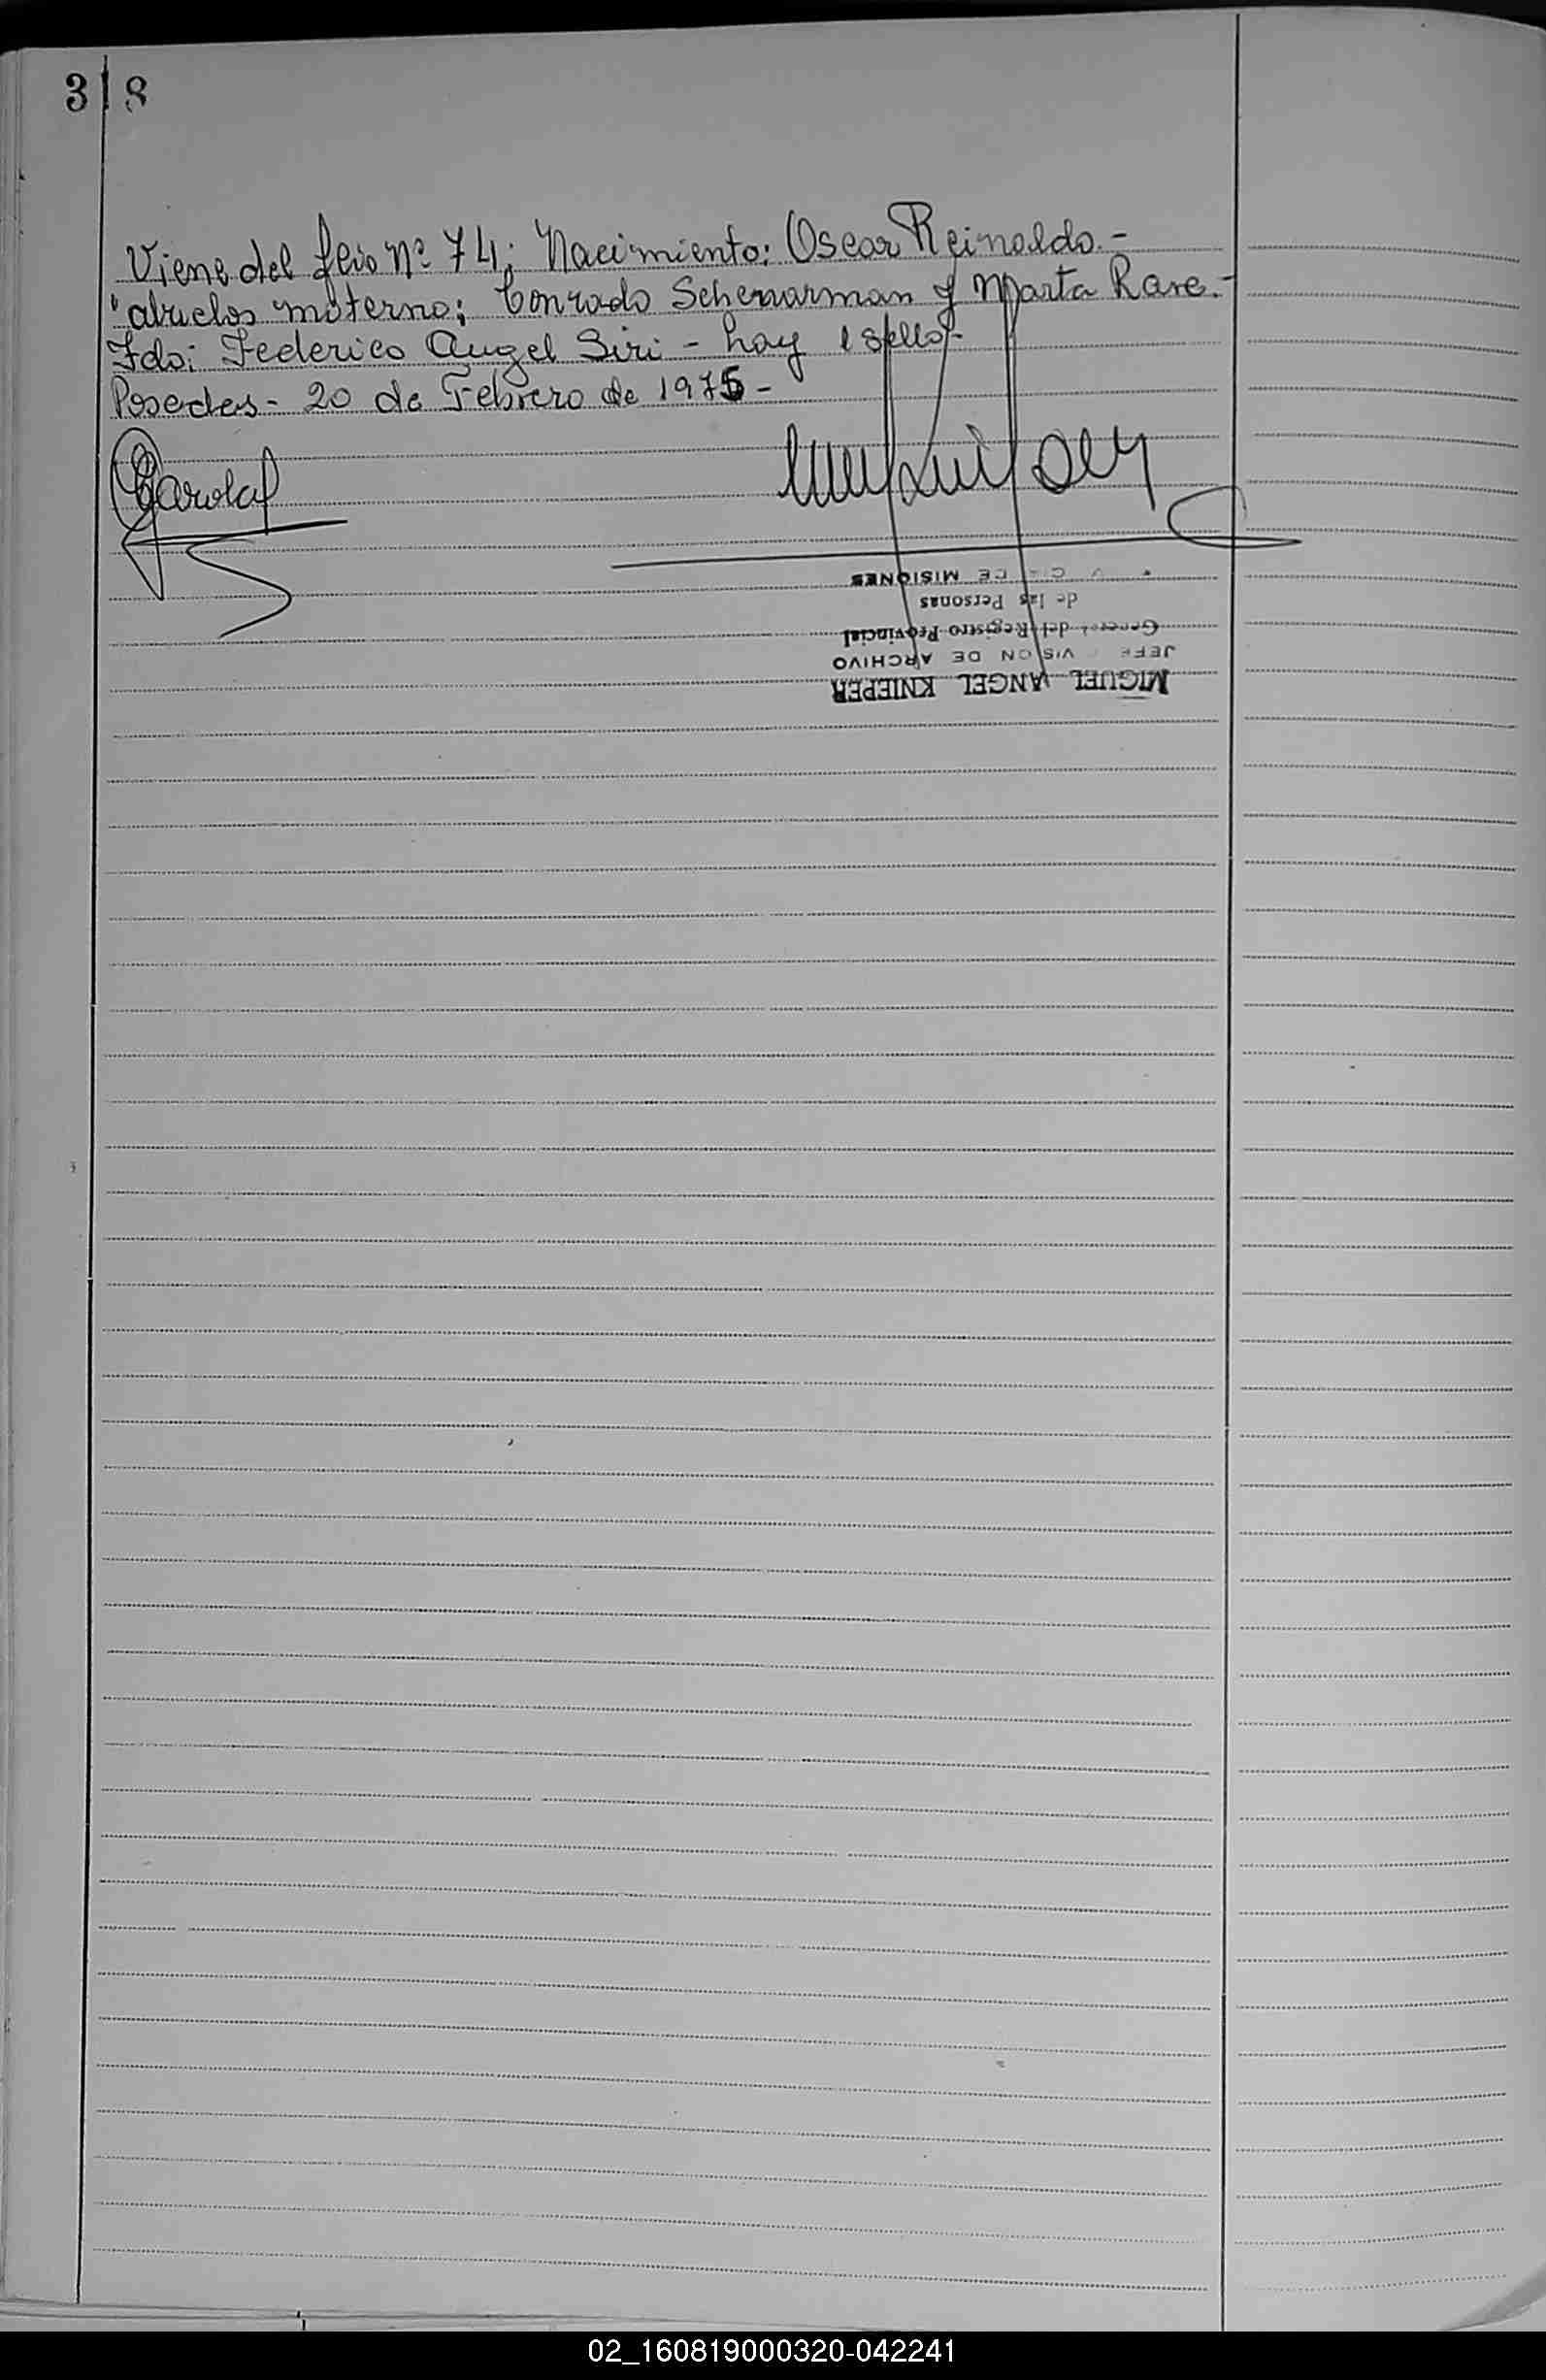 318
Viene del flio Nº 74; Nacimiento: Oscar Reinaldo.-
"abuelos materno; Conrado Schenarman y Marta Rave.-
Fdo: Federico Angel Siri - hay 1 sello -
Posadas - 20 de Febrero de 1975 -
DE MISIONES
de las Personas
General del Registro Provincial
JEFE VISION DE ARCHIVO
MIGUEL ANGEL KNIEPER
02_160819000320-042241